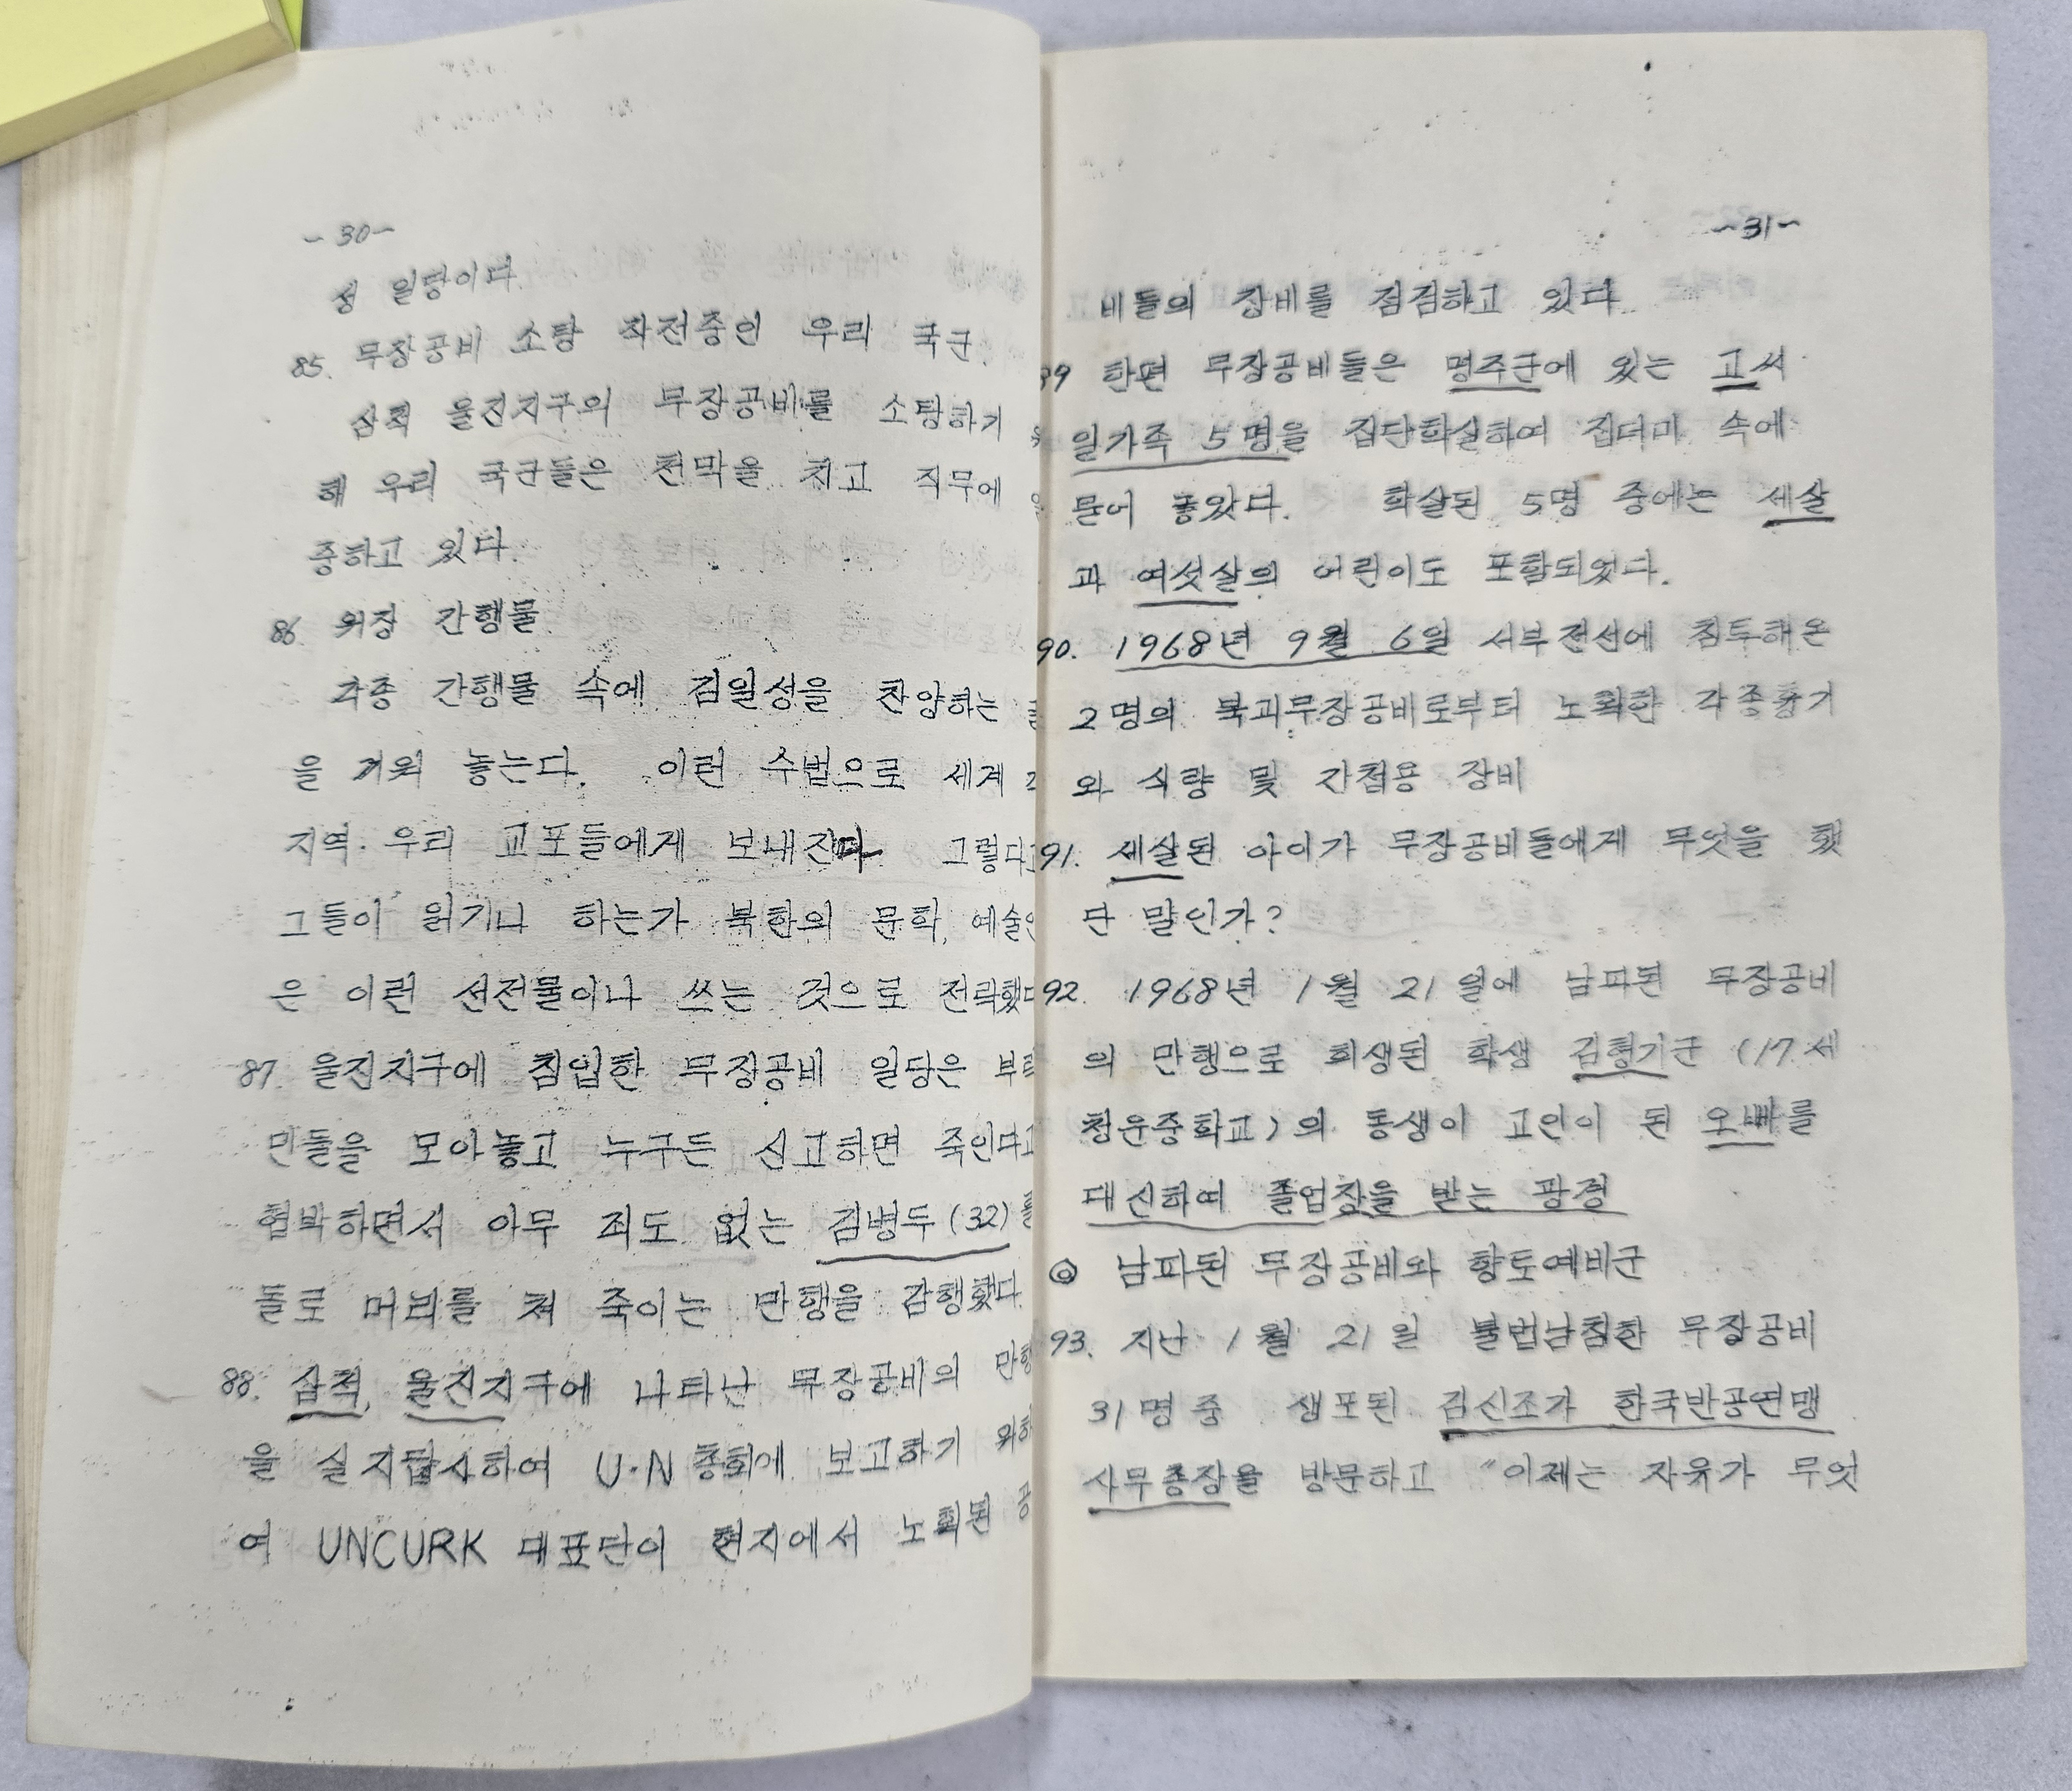 ~30~
성 일당이다.
85. 무장공비 소탕 작전중인 우리 국군.
삼척 울진지구의 무장공비를 소탕하기
해 우리 국군들은 천막을 치고 직무에
중하고 있다.
86. 위장 간행물
각종 간행물 속에 김일성을 찬양하는
을 끼워 놓는다. 이런 수법으로 세계
지역·우리 교포들에게 보내진다. 그렇다고
그들이 읽기나 하는가 북한의 문학, 예술인
은 이런 선전물이나 쓰는 것으로 전락했다
87. 울진지구에 침입한 무장공비 일당은 부락
민들을 모아놓고 누구든 신고하면 죽인다고
협박하면서 아무 죄도 없는 김병두(32)를
돌로 머리를 쳐 죽이는 만행을 감행했다.
88. 삼척, 울진지구에 나타난 무장공비의 만행
을 실지답사하여 U·N 총회에 보고하기 위하
여 UNCURK 대표단이 현지에서 노획된 공
~31~
비들의 장비를 점검하고 있다.
89 한편 무장공비들은 명주군에 있는 고씨
일가족 5명을 집단학살하여 집더미 속에
묻어 놓았다. 학살된 5명 중에는 세살
과 여섯살의 어린이도 포함되었다.
90. 1968년 9월 6일 서부전선에 침투해온
2명의 북괴무장공비로부터 노획한 각종총기
와 식량 및 간첩용 장비
91. 세살된 아이가 무장공비들에게 무엇을 했
단 말인가?
92. 1968년 1월 21일에 남파된 무장공비
의 만행으로 희생된 학생 김형기군 (17세
청운중학교)의 동생이 고인이 된 오빠를
대신하여 졸업장을 받는 광경
◎ 남파된 무장공비와 향토예비군
93. 지난 1월 21일 불법남침한 무장공비
31명중 생포된 김신조가 한국반공연맹
사무총장을 방문하고 "이제는 자유가 무엇